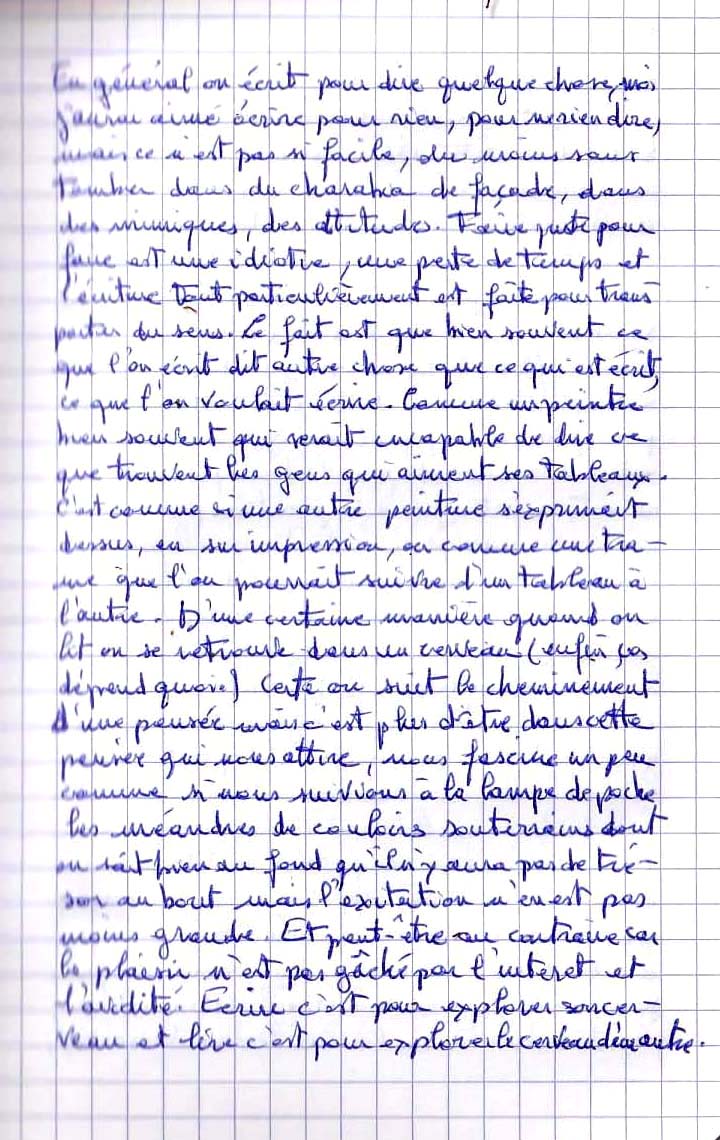 En général on écrit pour dire quelque chose, moi
j'aurai aimé écrire pour rien, pour ne rien dire,
mais ce n'est pas si facile, du moins sans
tomber dans du charabia de façade, dans
des mimiques, des attitudes. Faire juste pour
faire est une idiotie, une perte de temps et
l'écriture tout particulièrement est faite pour trans
porter du sens. Le fait est que bien souvent ce
que l'on écrit dit autre chose que ce qui est écrit,
ce que l'on voulait écrire. Comme un peintre
bien souvent qui serait incapable de dire ce
que trouvent les gens qui aiment ses tableaux.
C'est comme si une autre peinture s'exprimait
dessus, en sur impression, ou comme une tra-
me que l'on pourrait suivre d'un tableau à
l'autre. D'une certaine manière quand on
lit on se retrouve dans un cerveau (enfin ças
dépend quoi.) Certe on suit le cheminement
d'une pensée mais c'est plus d'être dans cette
pensée qui nous attire, nous fascine un peu
comme si nous suivions à la lampe de poche
les méandres de couloirs souterrains dont
on sait bien au fond qu'il n'y aura pas de tré-
sor au bout mais l'exitation n'en est pas
moins grande. Et peut-être au contraire car
le plaisir n'est pas gâché par l'interet et
l'avidité. Ecrire c'est pour explorer son cer-
veau et lire c'est pour explorer le cerveau d'un autre.